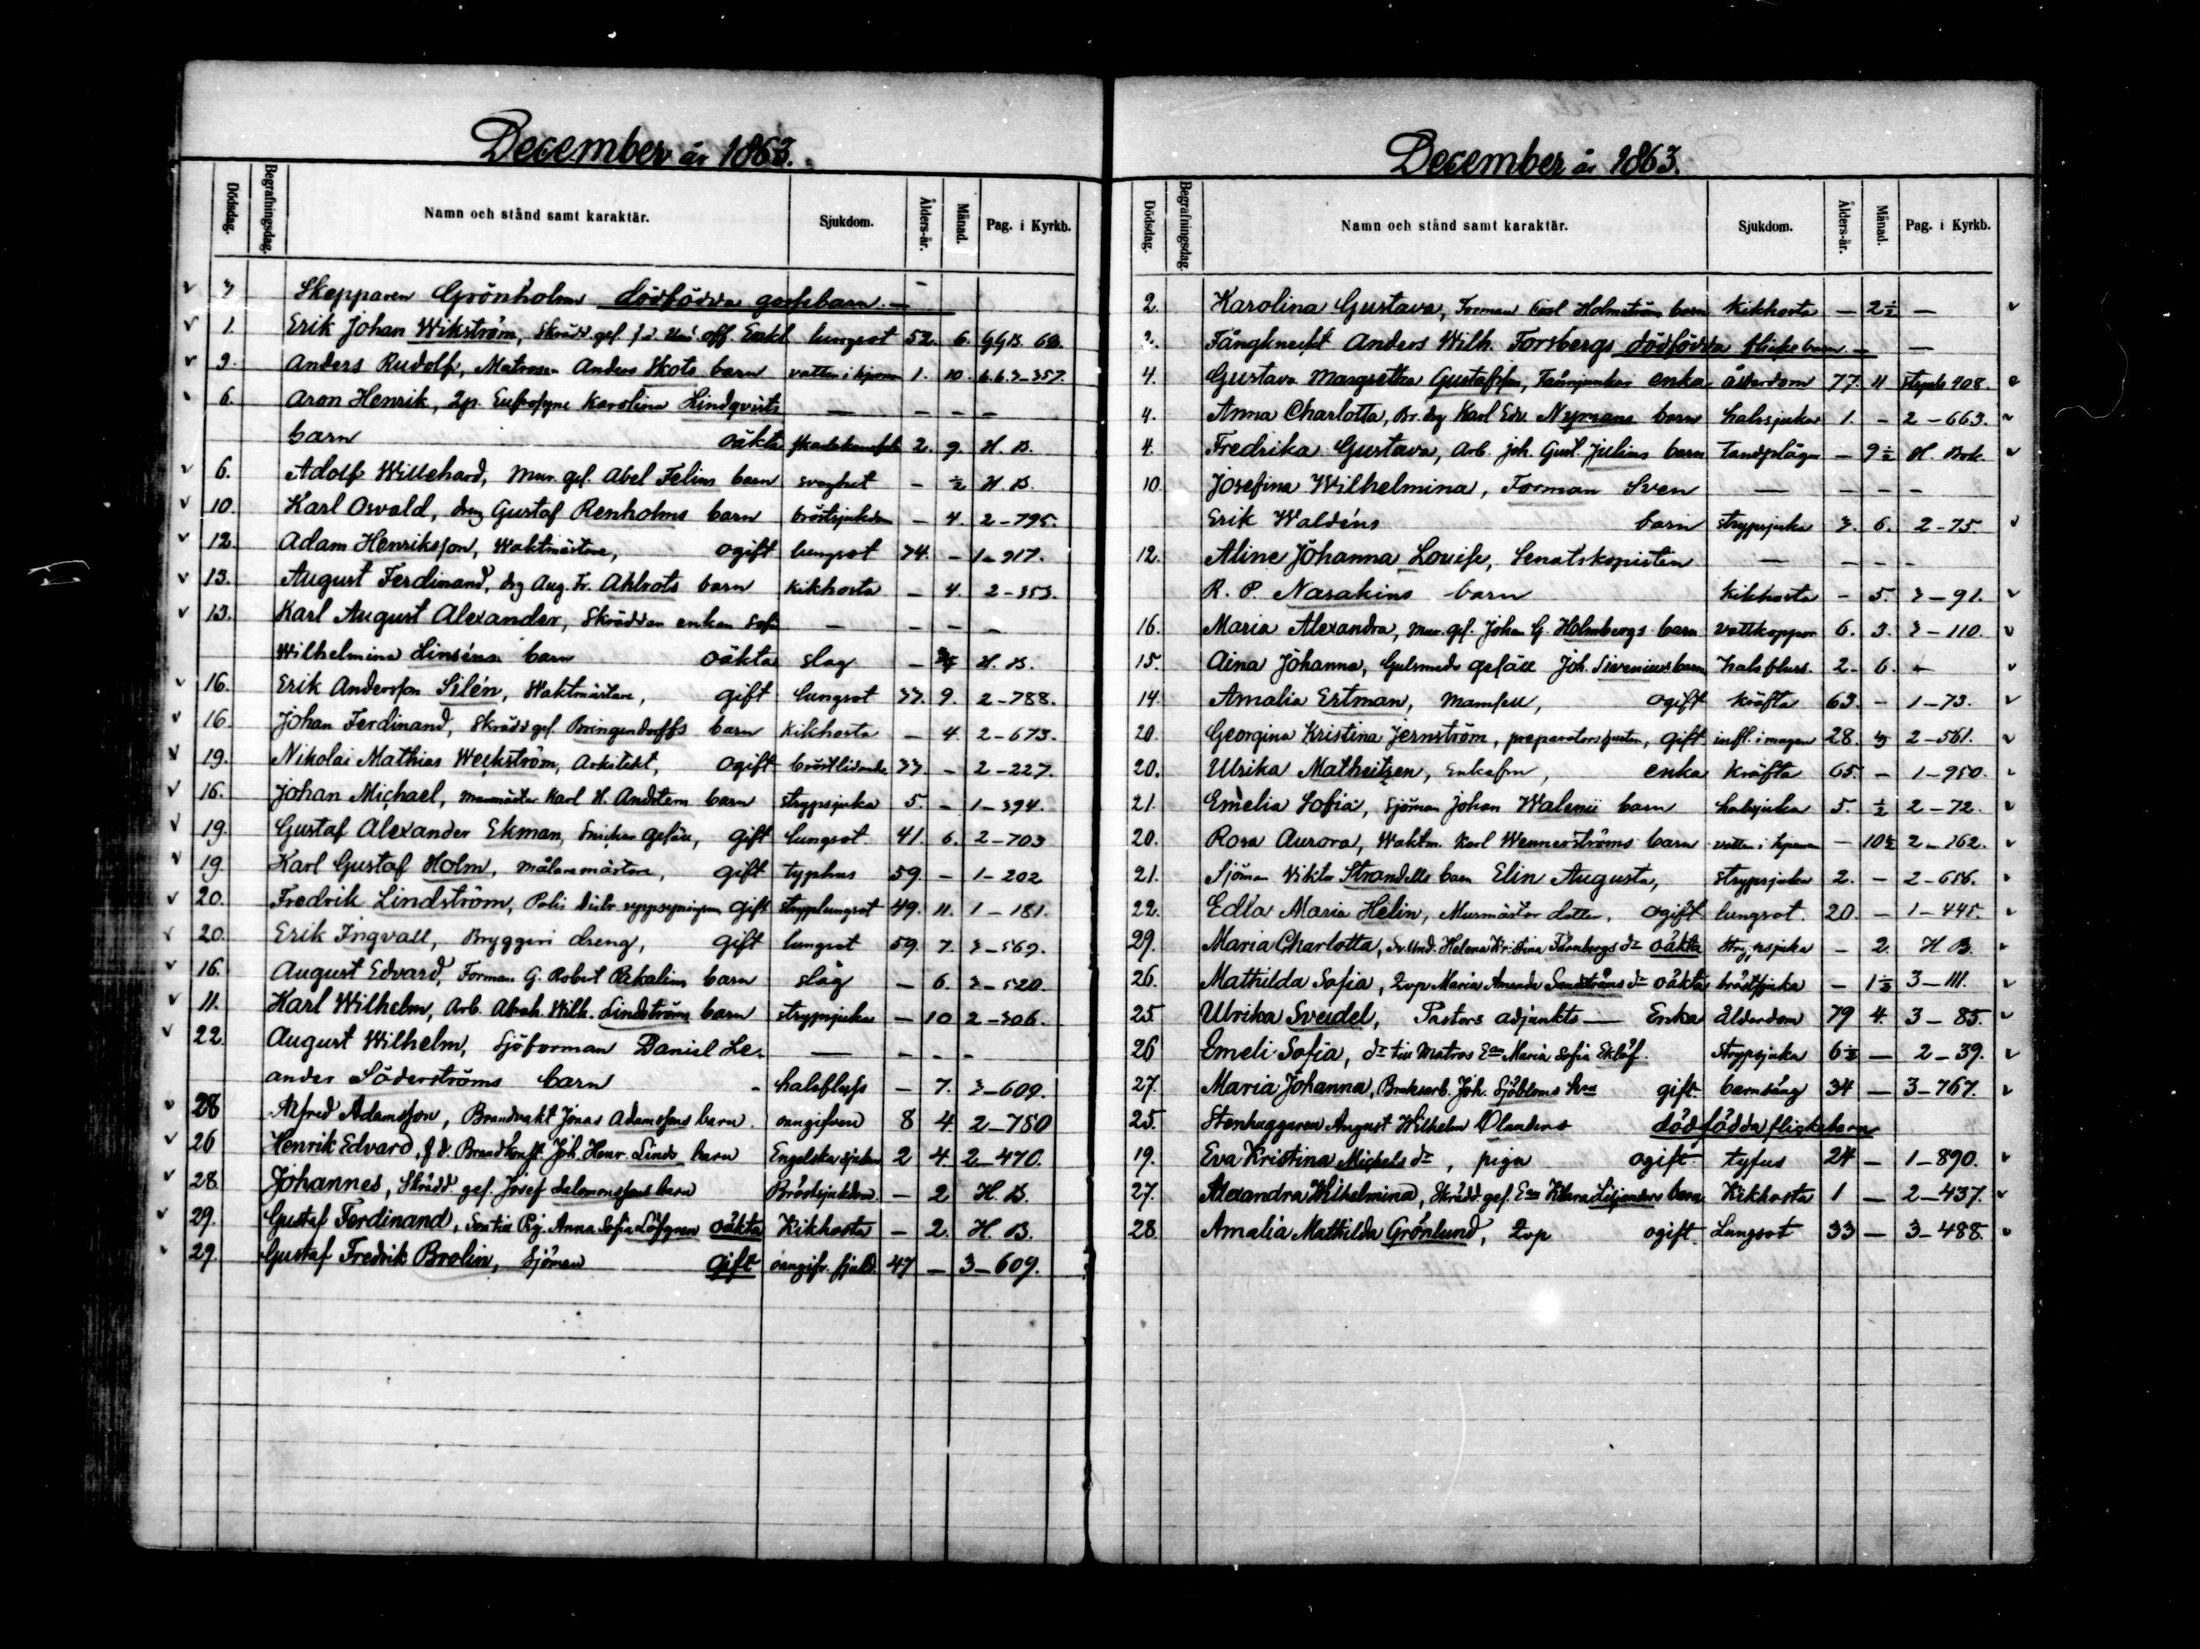 December år 1863.
Dödsdag. Begrafningsdag. Namn och stånd samt karaktär. Sjukdom. Ålders-år. Månad. Pag. i Kyrkb.
3 Skepparen Grönholms dödfödda gossebarn. —
1. Erik Johan Wikström, Skrädd. gef. lungsot 52. 6. GGB. 68.
3. Anders Rudolf, Matrosen Anders Skots barn vatten i hjernan 1. 10. 663-357.
6. Aron Henrik, 2p. Eufrosyne Karolina Lindqvists — — — —
barn oäkta 2. 9. H. B.
6. Adolf Willehard, Mur. gef. Abel Felins barn svaghet — ½ H. B.
10. Karl Osvald, drng Gustaf Renholms barn bröstsjukdom — 4. 2-795.
12. Adam Henriksson, Waktmästare, ogift lungsot 74. — 1-917.
13. August Ferdinand, drg Aug. Fr. Ahlrots barn Kikhosta — 4. 2-353.
13. Karl August Alexander, Skräddare enkan Sofia — — — —
Wilhelmina Linséns barn oäkta slag — ¾ H. B.
16. Erik Andersson Silén, Waktmästare, gift lungsot 33. 9. 2-788.
16. Johan Ferdinand, Skrädd gef. Bringendorffs barn Kikhosta — 4. 2-673.
19. Nikolai Mathias Weckström, Arkitekt, ogift bröstlidande 33. — 2-227.
16. Johan Michael, Murmäster Karl H. Andstens barn strypsjuka 5. — 1-394.
19. Gustaf Alexander Ekman, Snickare gesäll, gift lungsot 41. 6. 2-703
19. Karl Gustaf Holm, målaremästare, gift typhus 59. — 1-202
20. Fredrik Lindström, Polis distr. uppsyningsm. gift stryplungsot 49. 11. 1-181.
20. Erik Ingvall, Bryggeri dreng, gift lungsot 59. 7. 3-569.
16. August Edvard, Forman G. Robert barn slag — 6. 3-520.
11. Karl Wilhelm, Arb. Abrah. Wilh. Lindströms barn strypsjuka — 10 2-306.
22. August Wilhelm, Sjöforman Daniel Le- — — — —
ander Söderströms barn halsfluss — 7. 3-609.
28 Alfred Adamsson, Brandvakt Jonas Adamssons barn. oangifven 8 4. 2-750
26 Henrik Edvard, f. d. Joh. Henr. Linds barn Engelska sjukan 2 4. 2-470.
28 Johannes, Skrädd. gef. Josef Salomonssons barn Bröstsjukdom. — 2 H. B.
29. Gustaf Ferdinand, Son till Pig. Anna Sofia Löfgren oäkta Kikhosta — 2. H. B.
29. Gustaf Fredrik Brolin, Sjöman gift oangifv. sjukd. 47 — 3-609.
December år 1863.
Dödsdag. Begrafningsdag. Namn och stånd samt karaktär. Sjukdom. Ålders-år. Månad. Pag. i Kyrkb.
2. Karolina Gustava, Forman Carl Holmströms barn Kikhosta — 2½ —
Fångknecht Anders Wilh. Forsbergs dödfödda flickebarn — —
4. Gustava Margretha Gustafsson, enka ålderdom 77. 11. 908.
4. Anna Charlotta, Karl Edv. Nymans barn halssjuka 1. — 2-663.
4. Fredrika Gustava, Arb. Joh. Gust. Julins barn Tandplåga — 9½ H. Bok.
10. Josefina Wilhelmina, Forman Sven — — — —
Erik Waldéns barn strypsjuka 3. 6. 2-75.
12. Aline Johanna Louise, Senatskopisten — — — —
R. P. Narakins barn Kikhosta — 5. 3-91.
16. Maria Alexandra, Mur. gef. Johan G. Holmbergs barn vattkoppor 6. 3. 3-110.
15. Aina Johanna, Gulsmeds gesäll Joh. Siveniusbarn halsfluss. 2. 6. —
14. Amalia Ertman, Mamsell, ogift Kräfta 63. — 1-73.
20. Georgina Kristina Jernström, gift infl. i magen 28. 2-561.
20. Ulrika Matheitzen, Enkefru, enka Kräfta 65. — 1-950.
21. Emelia Sofia, Sjöman Johan Walenii barn halssjuka 5. ½ 2-72.
20. Rosa Aurora, Waktm. Karl Wennerströms barn vatten i hjernan — 10½ 2-262.
21. Sjöman Viktor Strandells barn Elin Augusta, strypsjuka 2. — 2-656.
22. Edla Maria Helin, Murmäster dotter, ogift lungsot. 20. — 1-445.
29. Maria Charlotta, Helena Kristina Törnbergs dr oäkta Strypsjuka — 2. H. B.
26. Mathilda Sofia, 2vp Maria Amanda Sandströms dr oäkta bröstsjuka — 1½ 3-111.
25 Ulrika Sveidel, Pastors adjunkts — Enka Ålderdom 79 4. 3-85.
26 Emeli Sofia, dr till Matros Ean Maria Sofia Eklöf. Strypsjuka 6½ — 2-39.
27. Maria Johanna, Bruksarb. Joh. Sjöbloms hru gift. barnsäng 34 — 3-767.
25. Stenhuggaren August Wilhelm Olanders dödfödda flickebarn
19. Eva Kristina Michels dr, piga ogift tyfus 24 — 1-890.
27. Alexandra Wilhelmina, Skrädd. gef. Ean Klara Liljanders barn Kikhosta 1 — 2-437.
28. Amalia Mathilda Grönlund, 2vp ogift Lungsot 33 — 3-488.